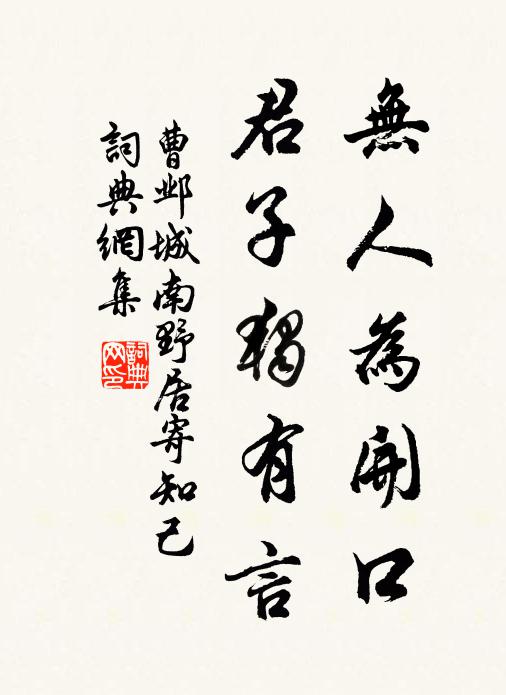 無人為開口
君子獨有言
曹鄴城南野居寄知己
詞典網集
詞典
网印